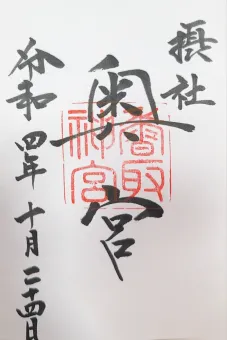 摂社
奥宮
香取神宮
令和四年十月二十四日